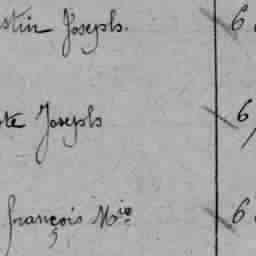 stin Joseph. 6
te Joseph 6
françois Mie 6